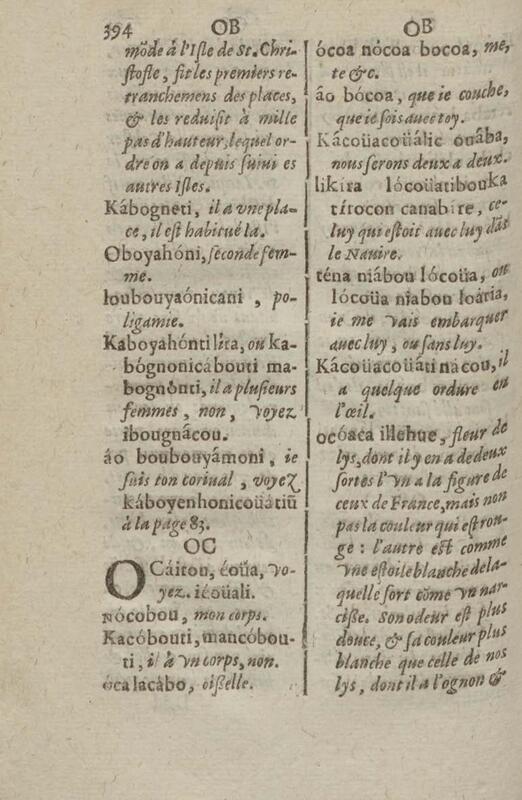 394 OB OB
mõde á l'Isle de St. Chri-
stofle, fit les premiers re-
tranchemens des places,
& les reduisit à mille
pas d'hauteur, lequel or-
dre on a depuis suiui es
autres Isles.
Kábogneti, il a vne pla-
ce, il est habitué la.
Oboyahóni, seconde fem-
me.
loubouyaónicani , po-
ligamie.
Kaboyahónti lita, ou ka-
bógnonicábouti ma-
bognónti, il a plusieurs
femmes, non, voyez
ibougnâcou.
áo boubouyámoni, ie
suis ton coriual, voyez
káboyenhonicoüátiũ
à la page 83.
OC
OCáitou, éoüa, vo-
yez. iéoüali.
Nócobou, mon corps.
Kacóbouti, mancóbou-
ti, il à vn corps, non.
ócalacábo, oißelle.
ócoa nócoa bocoa, me,
te &c.
áo bócoa, que ie couche,
que ie sois auec toy.
Kácoüacoüálic ouába,
nous serons deux a deux.
likira lócoüatibouka
títocon canabire, ce-
luy qui estoit auec luy dãs
le Nauire.
téna niábou lócoüa, ou
lócoüa niabou loária,
ie me vais embarquer
auec luy, ou sans luy.
Kácoüacoüáti nácou, il
a quelque ordure en
l'œil.
ocóaca illehue, fleur de
lys, dont il y en a de deux
sortes l'vn a la figure de
ceux de France, mais non
pas la couleur qui est rou-
ge : l'autre est comme
vne estoile blanche de la-
quelle sort cõme vn nar-
ciße. Son odeur est plus
douce, & sa couleur plus
blanche que celle de nos
lys, dont il a l'ognon &